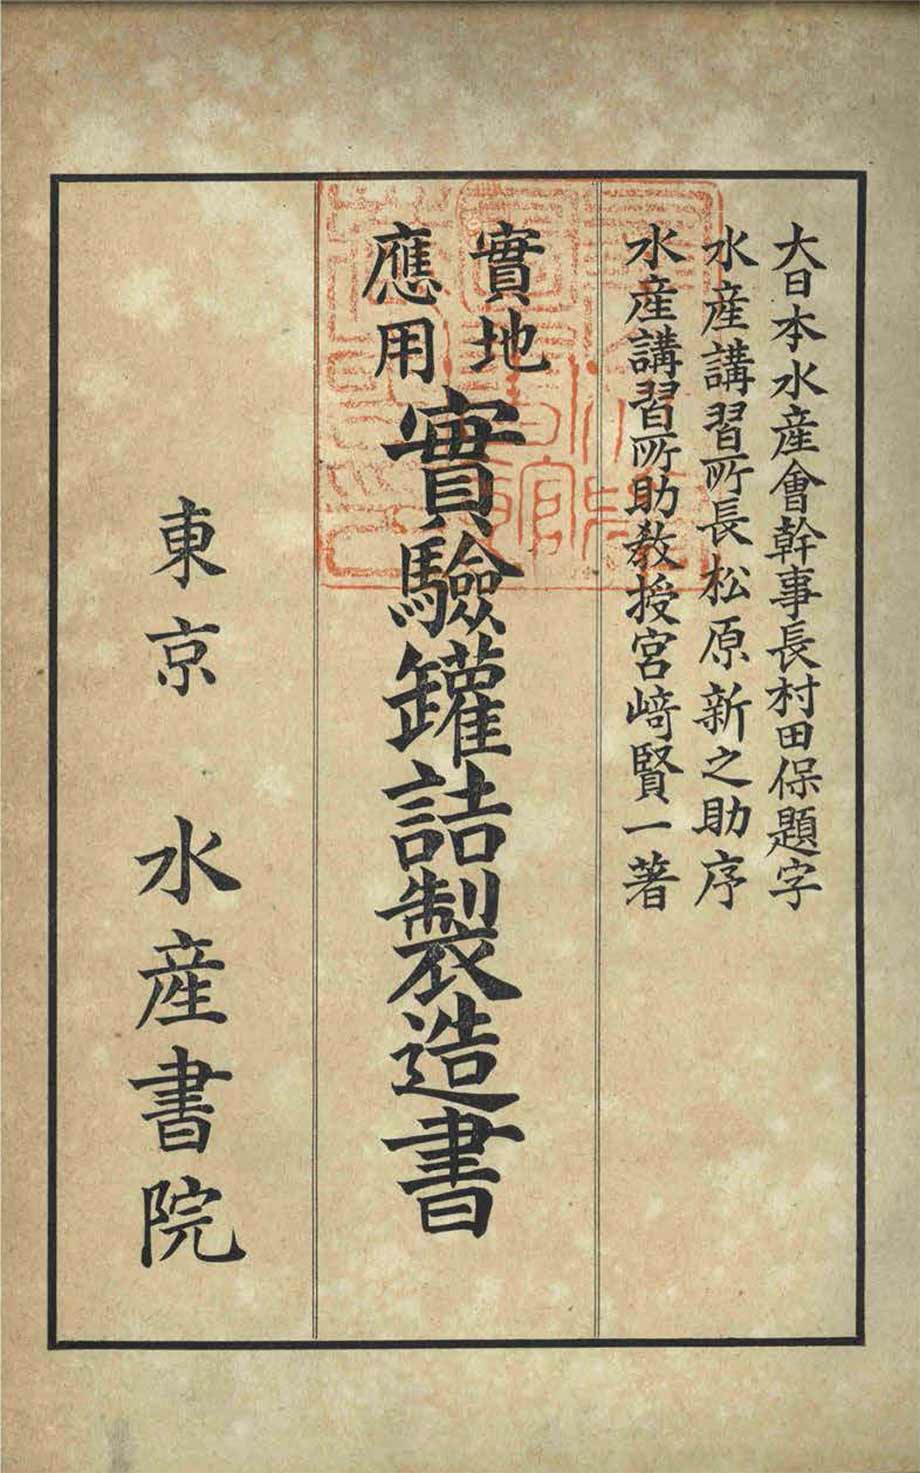 大日本水産會幹事長村田保題字
水産講習所長松原新之助序
水産講習所助教授宮﨑賢一著
實地
應用
實驗罐詰製造書
東京 水産書院